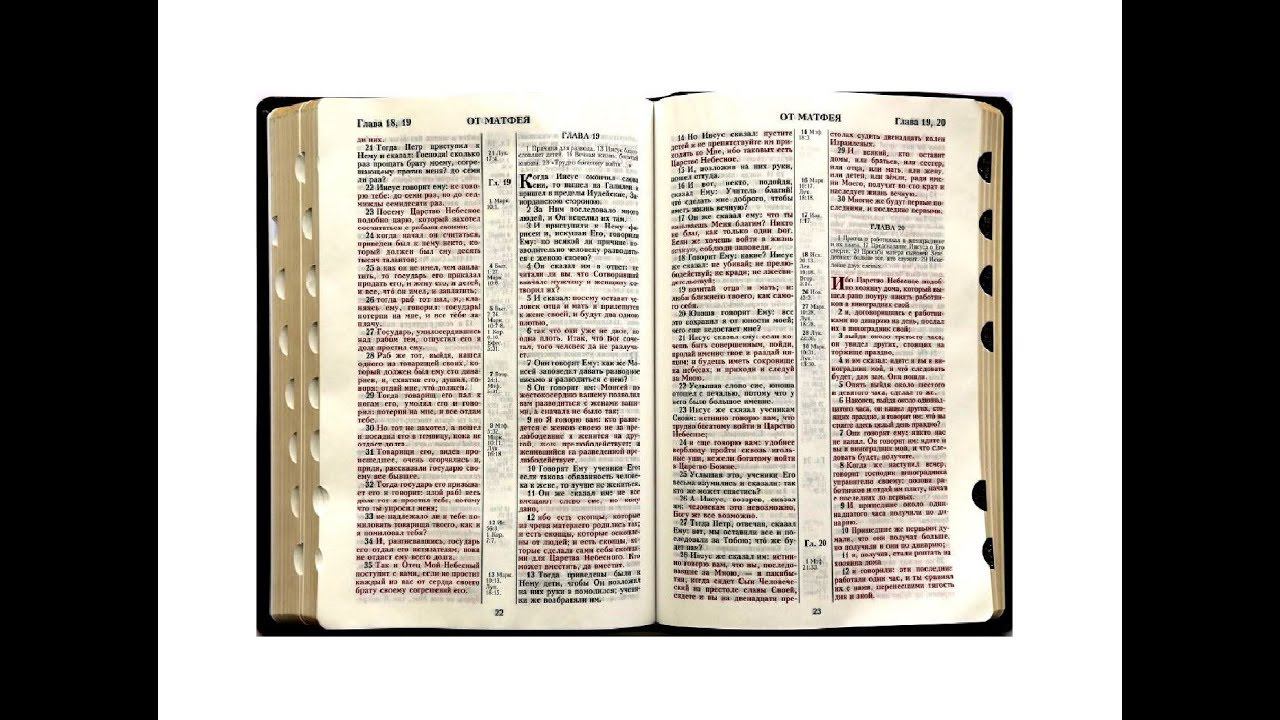 Глава 18, 19
ОТ МАТФЕЯ
ли них.
21 Тогда Петр приступил к
Нему и сказал: Господи! сколько
раз прощать брату моему, согре-
шающему против меня? до семи
ли раз?
22 Иисус говорит ему: не гово-
рю тебе: до семи раз, но до сед-
мижды семидесяти раз.
23 Посему Царство Небесное
подобно царю, который захотел
сосчитаться с рабами своими;
24 когда начал он считаться,
приведен был к нему некто, ко-
торый должен был ему десять
тысяч талантов;
25 а как он не имел, чем запла-
тить, то государь его приказал
продать его, и жену его, и детей,
и все, что он имел, и заплатить;
26 тогда раб тот пал, и, кла-
няясь ему, говорил: государь!
потерпи на мне, и все тебе за-
плачу.
27 Государь, умилосердившись
над рабом тем, отпустил его и
долг простил ему.
28 Раб же тот, выйдя, нашел
одного из товарищей своих, ко-
торый должен был ему сто дина-
риев, и, схватив его, душил, го-
воря: отдай мне, что должен.
29 Тогда товарищ его пал к
ногам его, умолял его и гово-
рил: потерпи на мне, и все отдам
тебе.
30 Но тот не захотел, а пошел
и посадил его в темницу, пока не
отдаст долга.
31 Товарищи его, видев про-
исшедшее, очень огорчились и,
придя, рассказали государю сво-
ему все бывшее.
32 Тогда государь его призыва-
ет его и говорит: злой раб! весь
долг тот я простил тебе, потому
что ты упросил меня;
33 не надлежало ли и тебе по-
миловать товарища твоего, как и
я помиловал тебя?
34 И, разгневавшись, государь
его отдал его истязателям, пока
не отдаст ему всего долга.
35 Так и Отец Мой Небесный
поступит с вами, если не простит
каждый из вас от сердца своего
брату своему согрешений его.
Гл. 19
ГЛАВА 19
Когда Иисус окончил слова
сии, то вышел из Галилеи и
пришел в пределы Иудейские, За-
иорданскою стороною.
2 За Ним последовало много
людей, и Он исцелил их там.
3 И приступили к Нему фа-
рисеи и, искушая Его, говорили
Ему: по всякой ли причине поз-
волительно человеку разводить-
ся с женою своею?
4 Он сказал им в ответ: не
читали ли вы, что Сотворивший
вначале мужчину и женщину со-
творил их?
5 И сказал: посему оставит че-
ловек отца и мать и прилепится
к жене своей, и будут два одною
плотью,
6 так что они уже не двое, но
одна плоть. Итак, что Бог соче-
тал, того человек да не разлу-
чает.
7 Они говорят Ему: как же Мо-
исей заповедал давать разводное
письмо и разводиться с нею?
8 Он говорит им: Моисей по
жестокосердию вашему позволил
вам разводиться с женами ваши-
ми, а сначала не было так;
9 но Я говорю вам: кто разве-
дется с женою своею не за пре-
любодеяние и женится на дру-
гой, тот прелюбодействует; и
женившийся на разведенной пре-
любодействует.
10 Говорят Ему ученики Его:
если такова обязанность челове-
ка к жене, то лучше не жениться.
11 Он же сказал им: не все
вмещают слово сие, но кому
дано,
12 ибо есть скопцы, которые
из чрева матернего родились так;
и есть скопцы, которые оскопле-
ны от людей; и есть скопцы, ко-
торые сделали сами себя скопца-
ми для Царства Небесного. Кто
может вместить, да вместит.
13 Тогда приведены были к
Нему дети, чтобы Он возложил
на них руки и помолился; учени-
ки же возбраняли им.
22
ОТ МАТФЕЯ
Глава 19, 20
14 Но Иисус сказал: пустите
детей и не препятствуйте им при-
ходить ко Мне, ибо таковых есть
Царство Небесное.
15 И, возложив на них руки,
пошел оттуда.
16 И вот, некто, подойдя,
сказал Ему: Учитель благий!
что сделать мне доброго, чтобы
иметь жизнь вечную?
17 Он же сказал ему: что ты
называешь Меня благим? Никто
не благ, как только один Бог.
Если же хочешь войти в жизнь
вечную, соблюди заповеди.
18 Говорит Ему: какие? Иисус
же сказал: не убивай; не прелю-
бодействуй; не кради; не лжесви-
детельствуй;
19 почитай отца и мать; и:
люби ближнего твоего, как само-
го себя.
20 Юноша говорит Ему: все
это сохранил я от юности моей;
чего еще недостает мне?
21 Иисус сказал ему: если хо-
чешь быть совершенным, пойди,
продай имение твое и раздай ни-
щим; и будешь иметь сокровище
на небесах; и приходи и следуй
за Мною.
22 Услышав слово сие, юноша
отошел с печалью, потому что у
него было большое имение.
23 Иисус же сказал ученикам
Своим: истинно говорю вам, что
трудно богатому войти в Царство
Небесное;
24 и еще говорю вам: удобнее
верблюду пройти сквозь иголь-
ные уши, нежели богатому войти
в Царство Божие.
25 Услышав это, ученики Его
весьма изумились и сказали: так
кто же может спастись?
26 А Иисус, воззрев, сказал
им: человекам это невозможно,
Богу же все возможно.
27 Тогда Петр, отвечая, сказал
Ему: вот, мы оставили все и по-
следовали за Тобою; что же бу-
дет нам?
28 Иисус же сказал им: истин-
но говорю вам, что вы, последо-
вавшие за Мною, — в пакибы-
тии, когда сядет Сын Человечес-
кий на престоле славы Своей,
сядете и вы на двенадцати пре-
Гл. 20
столах судить двенадцать колен
Израилевых.
29 И всякий, кто оставит
домы, или братьев, или сестер,
или отца, или мать, или жену,
или детей, или земли, ради име-
ни Моего, получит во сто крат и
наследует жизнь вечную.
30 Многие же будут первые по-
следними, и последние первыми.
ГЛАВА 20
Ибо Царство Небесное подоб-
но хозяину дома, который вы-
шел рано поутру нанять работни-
ков в виноградник свой
2 и, договорившись с работни-
ками по динарию на день, послал
их в виноградник свой;
3 выйдя около третьего часа,
он увидел других, стоящих на
торжище праздно,
4 и им сказал: идите и вы в
виноградник мой, и что следовать
будет, дам вам. Они пошли.
5 Опять выйдя около шестого
и девятого часа, сделал то же.
6 Наконец, выйдя около одиннад-
цатого часа, он нашел других, сто-
ящих праздно, и говорит им: что вы
стоите здесь целый день праздно?
7 Они говорят ему: никто нас
не нанял. Он говорит им: идите и
вы в виноградник мой, и что сле-
довать будет, получите.
8 Когда же наступил вечер,
говорит господин виноградника
управителю своему: позови ра-
ботников и отдай им плату, начав
с последних до первых.
9 И пришедшие около один-
надцатого часа получили по ди-
нарию.
10 Пришедшие же первыми ду-
мали, что они получат больше,
но получили и они по динарию;
11 и, получив, стали роптать на
хозяина дома
12 и говорили: эти последние
работали один час, и ты сравнял
их с нами, перенесшими тягость
дня и зной.
23